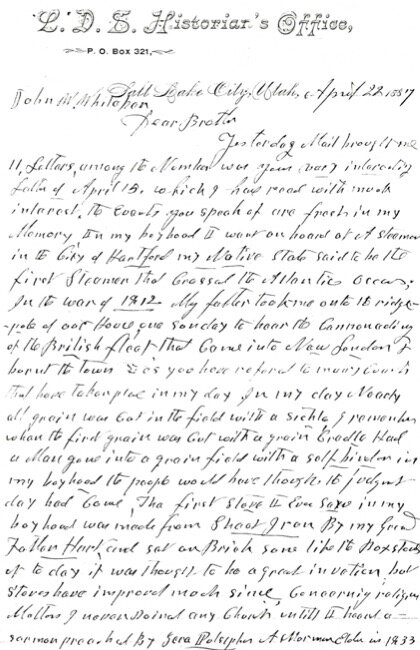 L. D. S. Historian's Office,
P. O. Box 321,
Salt Lake City, Utah, April 22 1887
John M. Whitaker
Dear Brother
Yesterday Mail brought me
11, Letters, among the Number was your very interesting
Letter of April 15. which I have read with much
interest. the Events you speak of are fresh in my
Memory In my boyhood I went on board of A Steamer
in the City of Hartford my Native State said to be the
first Steamer that Crossed the Atlantic Ocean.
In the war of 1812 My father took me onto the ridge-
pole of our House, one sunday to hear the Cannonading
of the British fleet that Came into New London &
burnt the town as you have referred to many Events
that have taken place in my day In my day Nearly
all grain was Cut in the field with a Sickle I remember
when the first grain was Cut with a grain Cradle Had
a Man gone into a grain field with a self binder in
my boyhood the people would have thought the judgment
day had Come, The first stove I Ever saw in my
boyhood was made from Sheat Iron By my Grand
Father Hart, and sat on Brick some like the Box stoves
of to day it was thought to be a great invention, but
Stoves have improved much since, Concerning religious
Matters I never Joined any Church untill I heard a
sermon preached By Zera Pulsipher A Mormon Elder in 1833